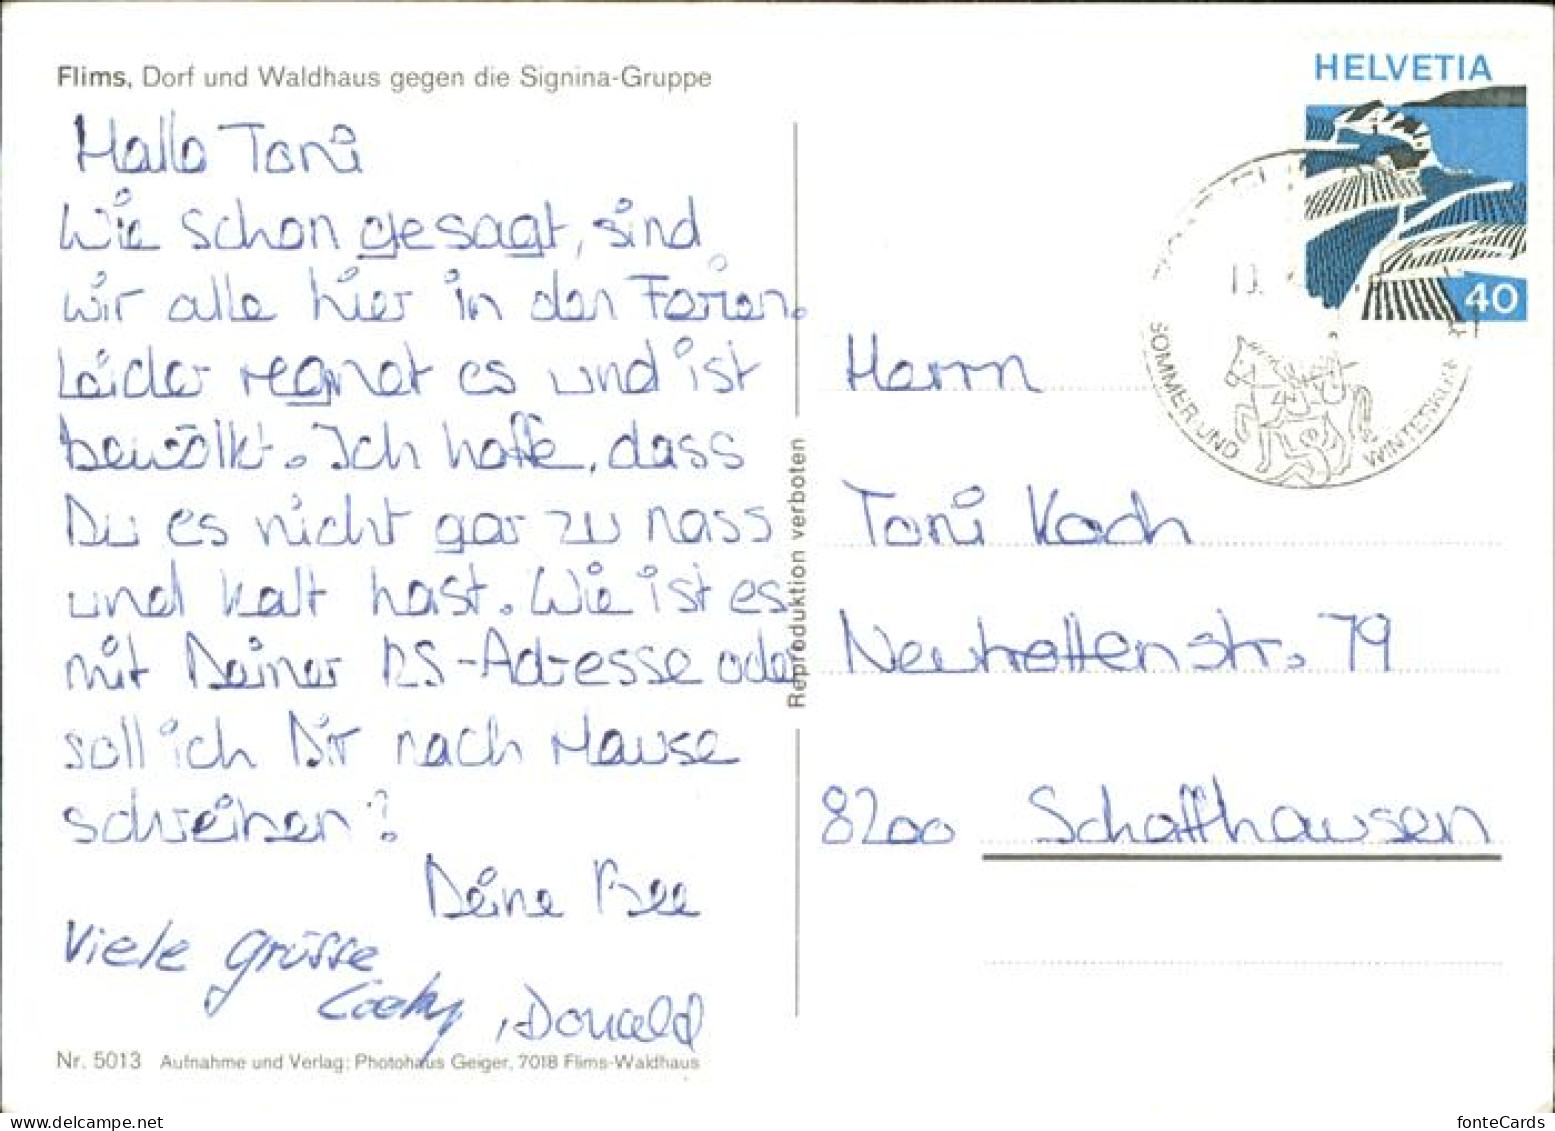 Flims, Dorf und Waldhaus gegen die Signina-Gruppe
Hallo Toni
Wie schon gesagt, sind
wir alle hier in den Ferien.
Leider regnet es und ist
bewölkt. Ich hoffe, dass
Du es nicht gar zu nass
und kalt hast. Wie ist es
mit Deiner RS-Adresse oder
soll ich Dir nach Hause
schreiben?
Deine Bee
Viele Grüsse
, Donald
Nr. 5013 Aufnahme und Verlag: Photohaus Geiger, 7018 Flims-Waldhaus
Reproduktion verboten
HELVETIA
40
SOMMER UND
Herrn
Toni Koch
79
8200 Schaffhausen
fonteCards